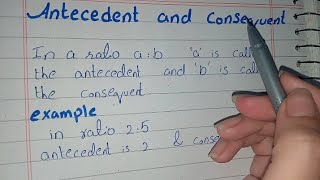 Antecedent and Consequent
In a ratio a:b 'a' is
the antecedent and 'b' is
the consequent
example
in ratio 2:5
antecedent is 2 &